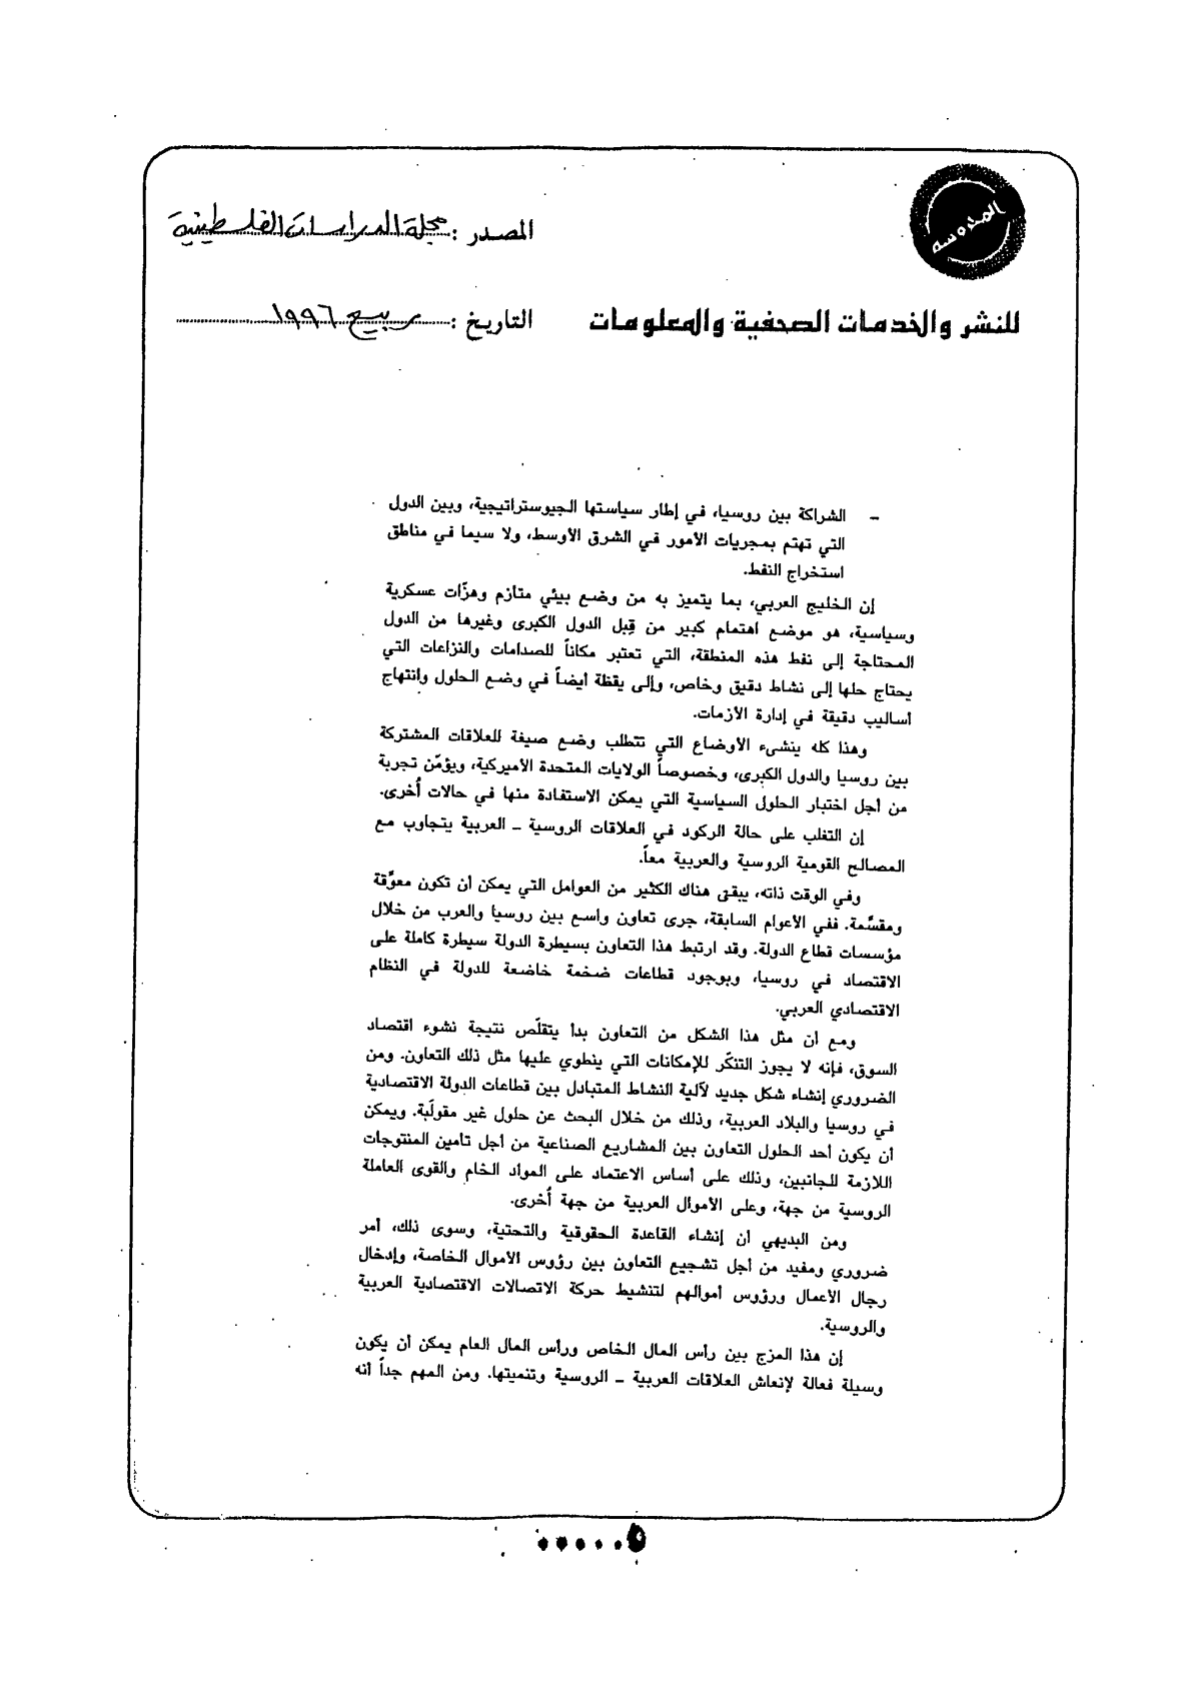 المحروسة
المصدر : مجلة الدراسات الفلسطينية
للنشر والخدمات الصحفية والمعلومات
التاريخ : ربيع ١٩٩٦
– الشراكة بين روسيا، في إطار سياستها الجيوستراتيجية، وبين الدول
التي تهتم بمجريات الأمور في الشرق الأوسط، ولا سيما في مناطق
استخراج النفط.
إن الخليج العربي، بما يتميز به من وضع بيئي متأزم وهزّات عسكرية
وسياسية، هو موضع اهتمام كبير من قِبل الدول الكبرى وغيرها من الدول
المحتاجة إلى نفط هذه المنطقة، التي تعتبر مكاناً للصدامات والنزاعات التي
يحتاج حلها إلى نشاط دقيق وخاص، وإلى يقظة أيضاً في وضع الحلول وانتهاج
أساليب دقيقة في إدارة الأزمات.
وهذا كله ينشىء الأوضاع التي تتطلب وضع صيغة للعلاقات المشتركة
بين روسيا والدول الكبرى، وخصوصاً الولايات المتحدة الأميركية، ويؤمّن تجربة
من أجل اختبار الحلول السياسية التي يمكن الاستفادة منها في حالات أُخرى.
إن التغلب على حالة الركود في العلاقات الروسية – العربية يتجاوب مع
المصالح القومية الروسية والعربية معاً.
وفي الوقت ذاته، يبقى هناك الكثير من العوامل التي يمكن أن تكون معوِّقة
ومقسِّمة. ففي الأعوام السابقة، جرى تعاون واسع بين روسيا والعرب من خلال
مؤسسات قطاع الدولة. وقد ارتبط هذا التعاون بسيطرة الدولة سيطرة كاملة على
الاقتصاد في روسيا، وبوجود قطاعات ضخمة خاضعة للدولة في النظام
الاقتصادي العربي.
ومع أن مثل هذا الشكل من التعاون بدأ يتقلّص نتيجة نشوء اقتصاد
السوق، فإنه لا يجوز التنكّر للإمكانات التي ينطوي عليها مثل ذلك التعاون. ومن
الضروري إنشاء شكل جديد لآلية النشاط المتبادل بين قطاعات الدولة الاقتصادية
في روسيا والبلاد العربية، وذلك من خلال البحث عن حلول غير مقولَبة. ويمكن
أن يكون أحد الحلول التعاون بين المشاريع الصناعية من أجل تأمين المنتوجات
اللازمة للجانبين، وذلك على أساس الاعتماد على المواد الخام والقوى العاملة
الروسية من جهة، وعلى الأموال العربية من جهة أُخرى.
ومن البديهي أن إنشاء القاعدة الحقوقية والتحتية، وسوى ذلك، أمر
ضروري ومفيد من أجل تشجيع التعاون بين رؤوس الأموال الخاصة، وإدخال
رجال الأعمال ورؤوس أموالهم لتنشيط حركة الاتصالات الاقتصادية العربية
والروسية.
إن هذا المزج بين رأس المال الخاص ورأس المال العام يمكن أن يكون
وسيلة فعالة لإنعاش العلاقات العربية – الروسية وتنميتها. ومن المهم جداً أنه